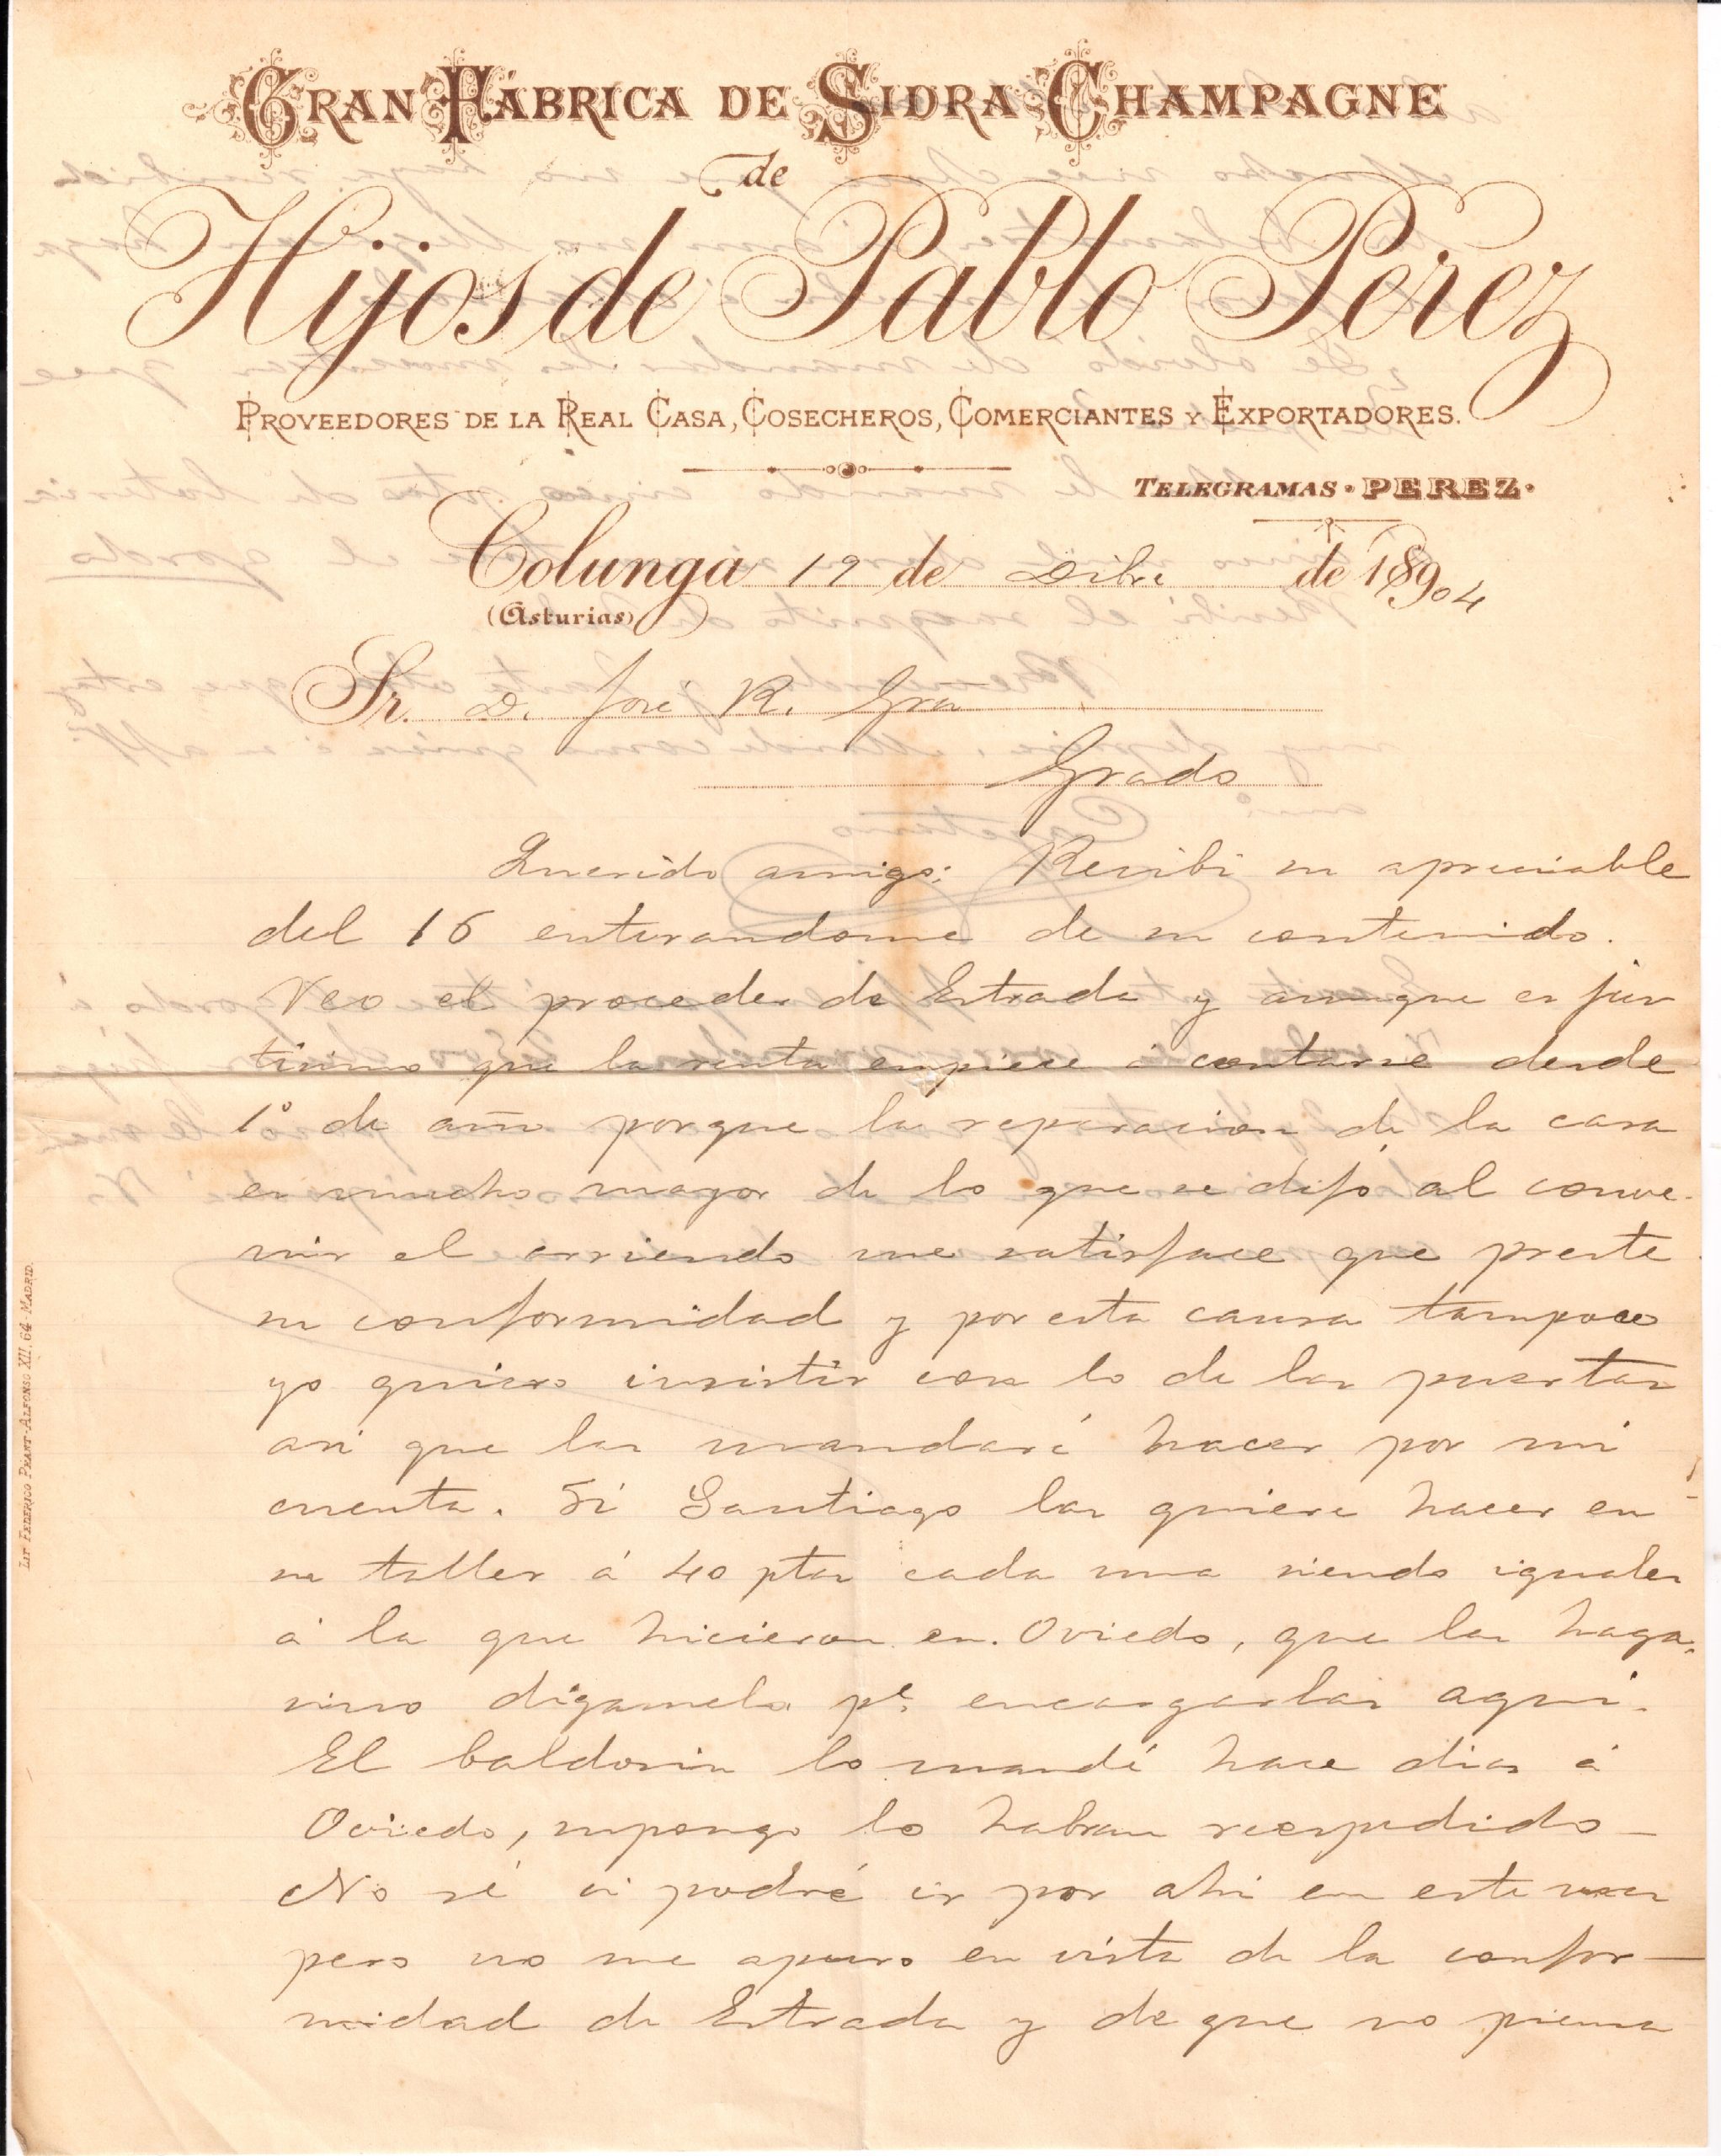 GRAN FÁBRICA DE SIDRA CHAMPAGNE
de
Hijos de Pablo Pérez
PROVEEDORES DE LA REAL CASA, COSECHEROS, COMERCIANTES Y EXPORTADORES.
TELEGRAMAS · PEREZ ·
Colunga 19 de Dibre de 18904
(Asturias)
Sr. D. José R. Grau
Grado
Querido amigo: Recibi su apreciable
del 16 enterandome de su contenido.
Veo el proceder de Estrada y aunque es jus
tisimo que la renta empiece á contarse desde
1º de año porque la reparacion de la casa
es mucho mayor de lo que se dijó al conve-
nir el arriendo me satisface que preste
su conformidad y por esta causa tampoco
yo quiero insistir con lo de las puertas
asi que las mandaré hacer por mi
cuenta. Si Santiago las quiere hacer en
su taller á 40 ptas cada una siendo iguales
á la que hicieron en Oviedo, que las haga,
sino digamelo pª encargarlas aqui.
El baldosin lo mandé hace dias á
Oviedo, supongo lo habran reespedido—
No sé si podré ir por ahi en este mes
pero no me apuro en vista de la confor—
midad de Estrada y de que no piensa
LIT FEDERICO PEANT-ALFONSO XII, 64-MADRID.